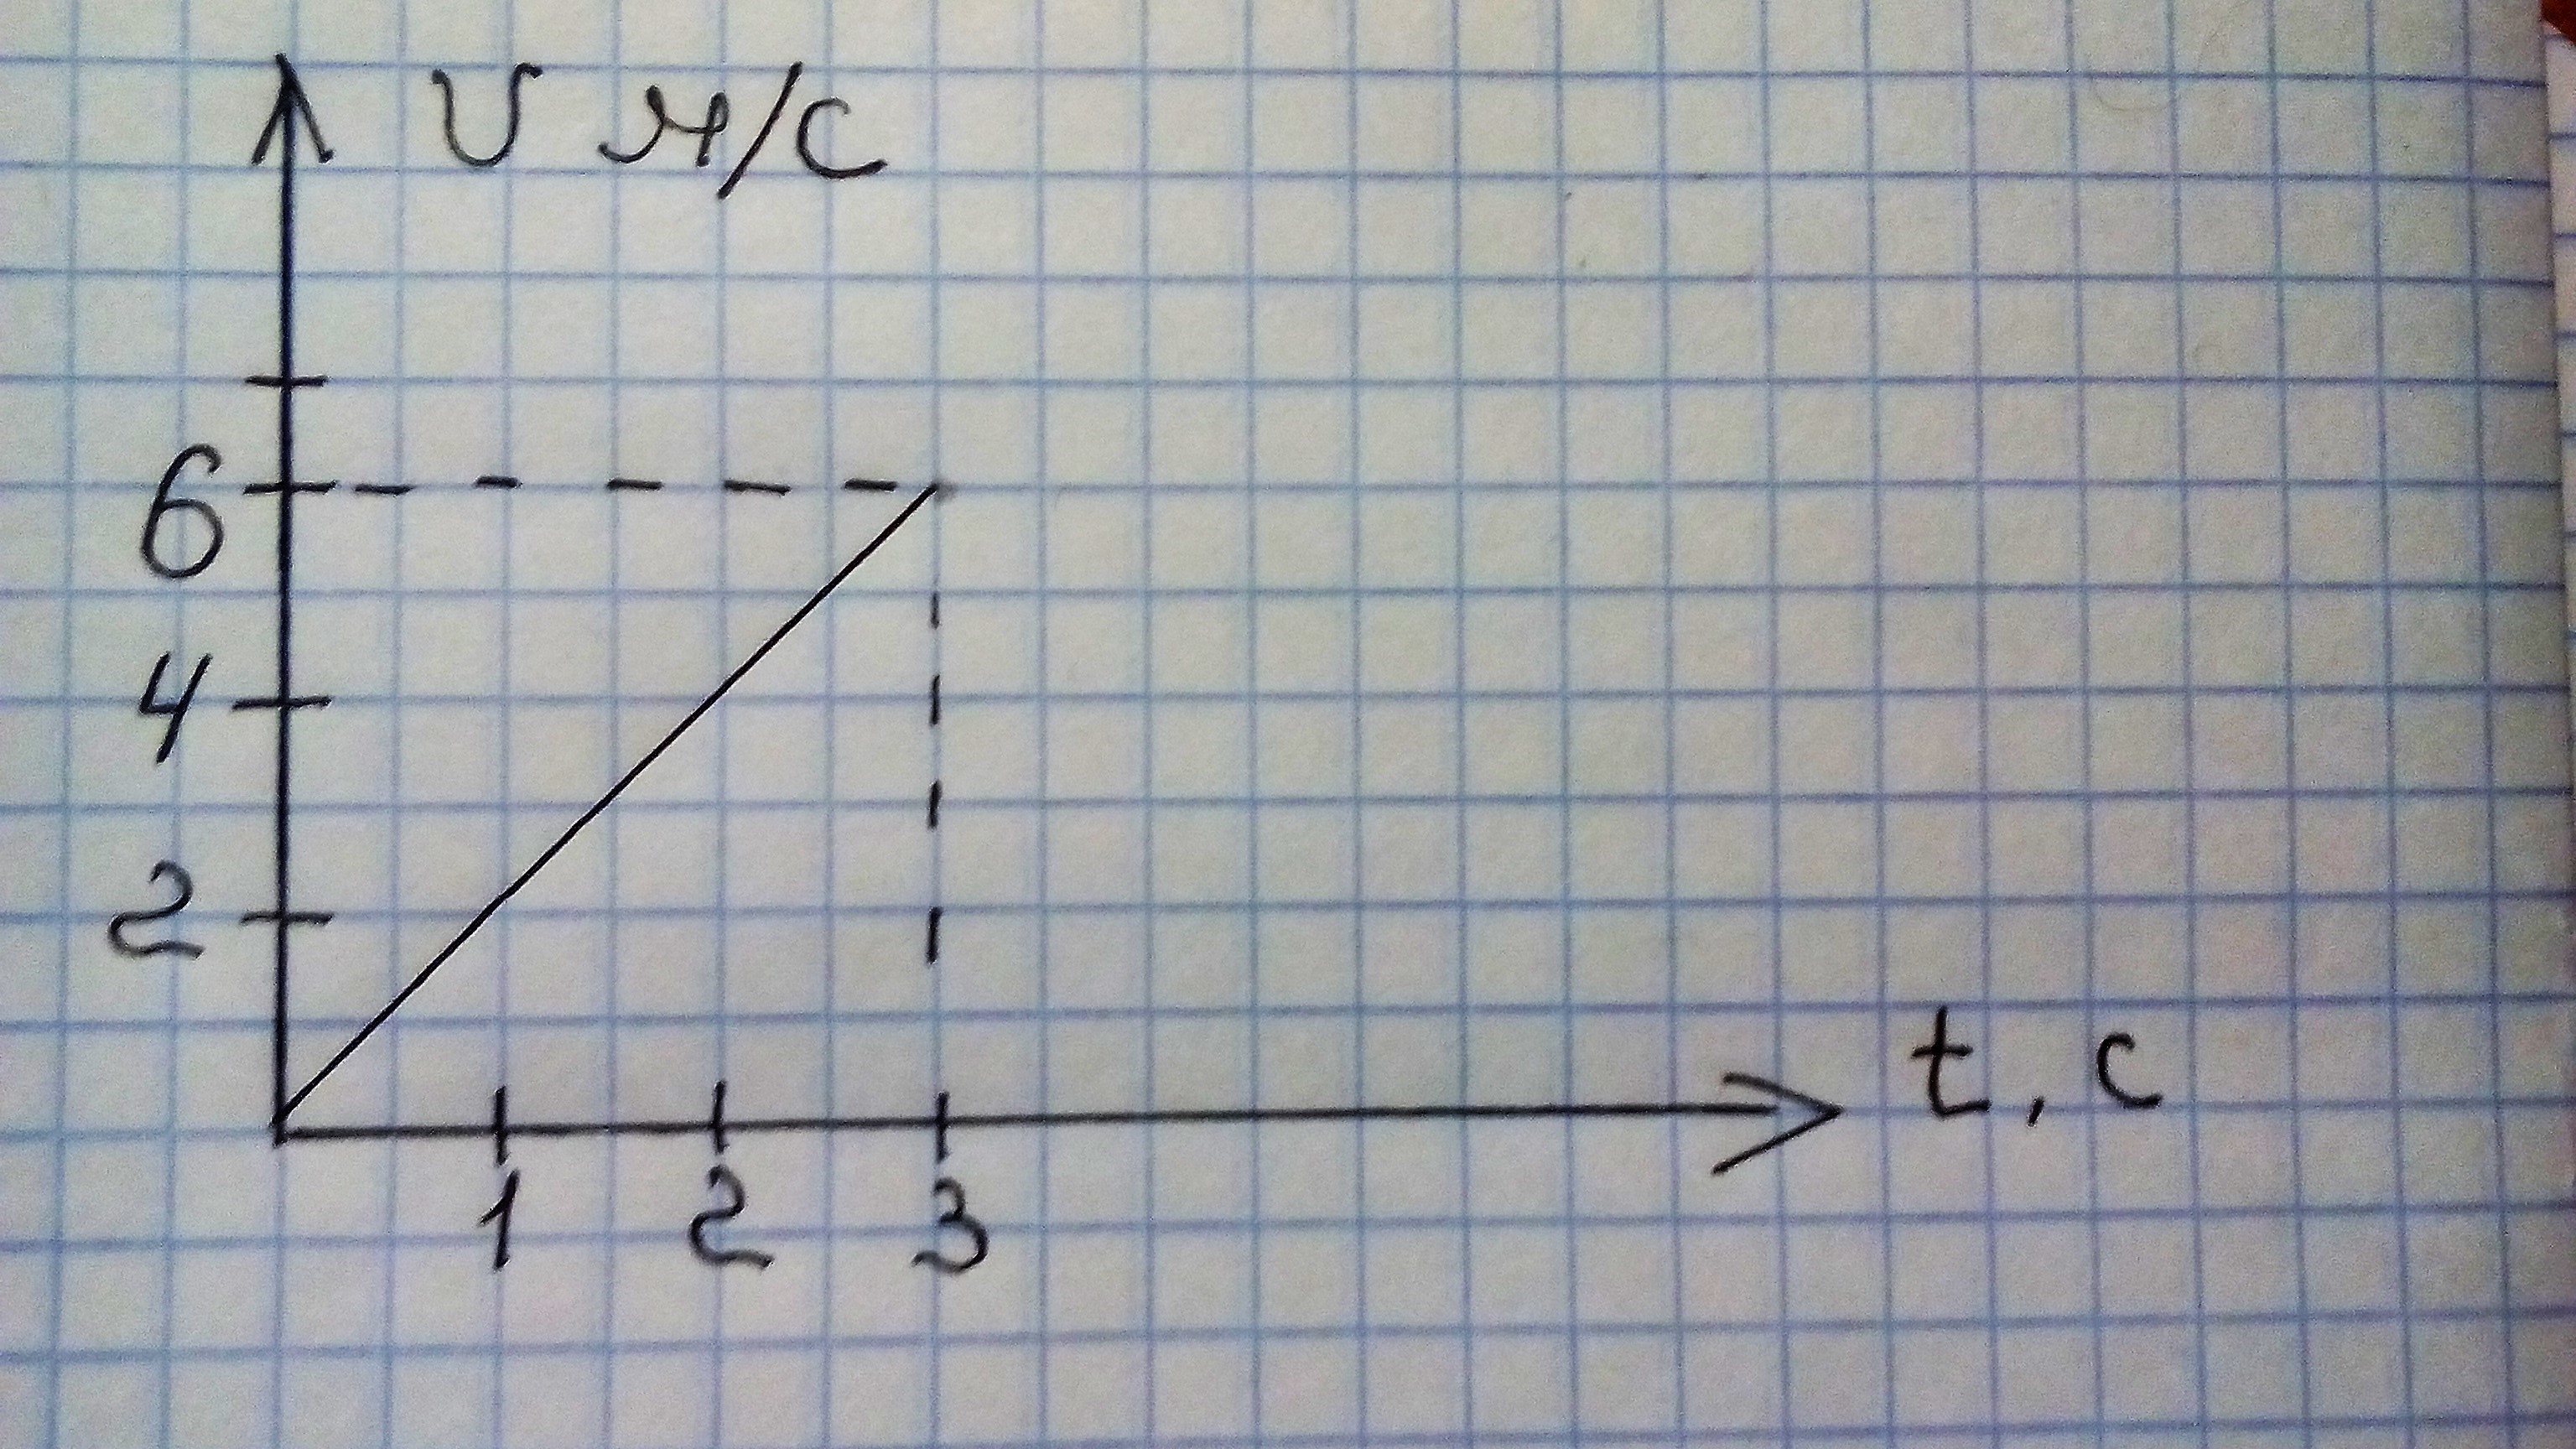 υ м/с
6
4
2
t, с
1 2 3